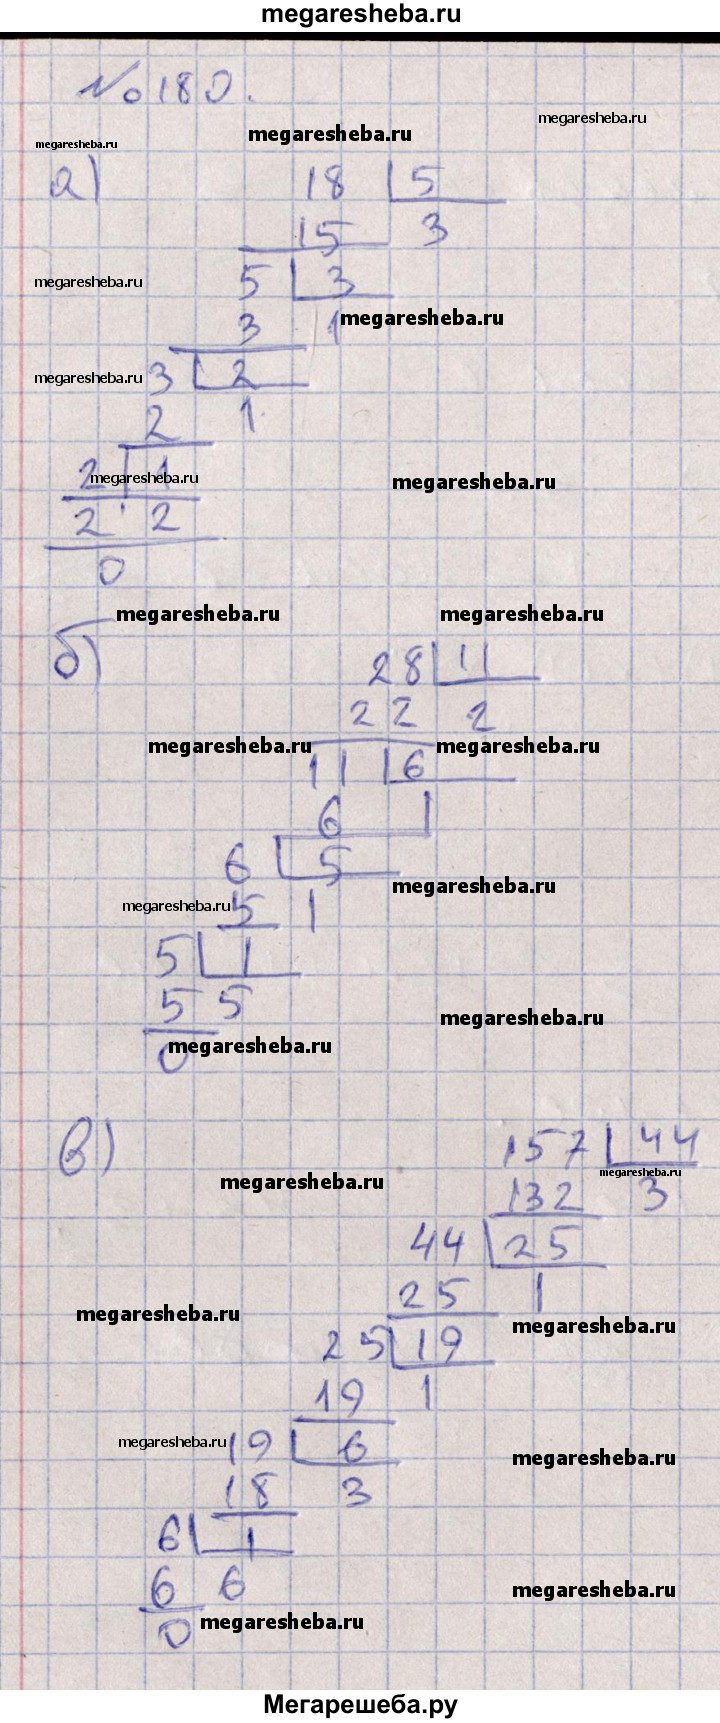 megaresheba.ru
№180.
megaresheba.ru
megaresheba.ru
megaresheba.ru
а)
18 5
15 3
megaresheba.ru
5 3
3 1
megaresheba.ru
megaresheba.ru
3 2
2 1
2 1
megaresheba.ru
megaresheba.ru
2 2
0
megaresheba.ru
megaresheba.ru
б)
28 11
22 2
megaresheba.ru
megaresheba.ru
11 6
6 1
6 5
megaresheba.ru
megaresheba.ru
5 1
5 1
5 5
megaresheba.ru
0
megaresheba.ru
в)
157 44
megaresheba.ru
megaresheba.ru
132 3
44 25
25 1
megaresheba.ru
megaresheba.ru
25 19
19 1
megaresheba.ru
19 6
megaresheba.ru
18 3
6 1
6 6
megaresheba.ru
0
megaresheba.ru
Мегарешеба.ру